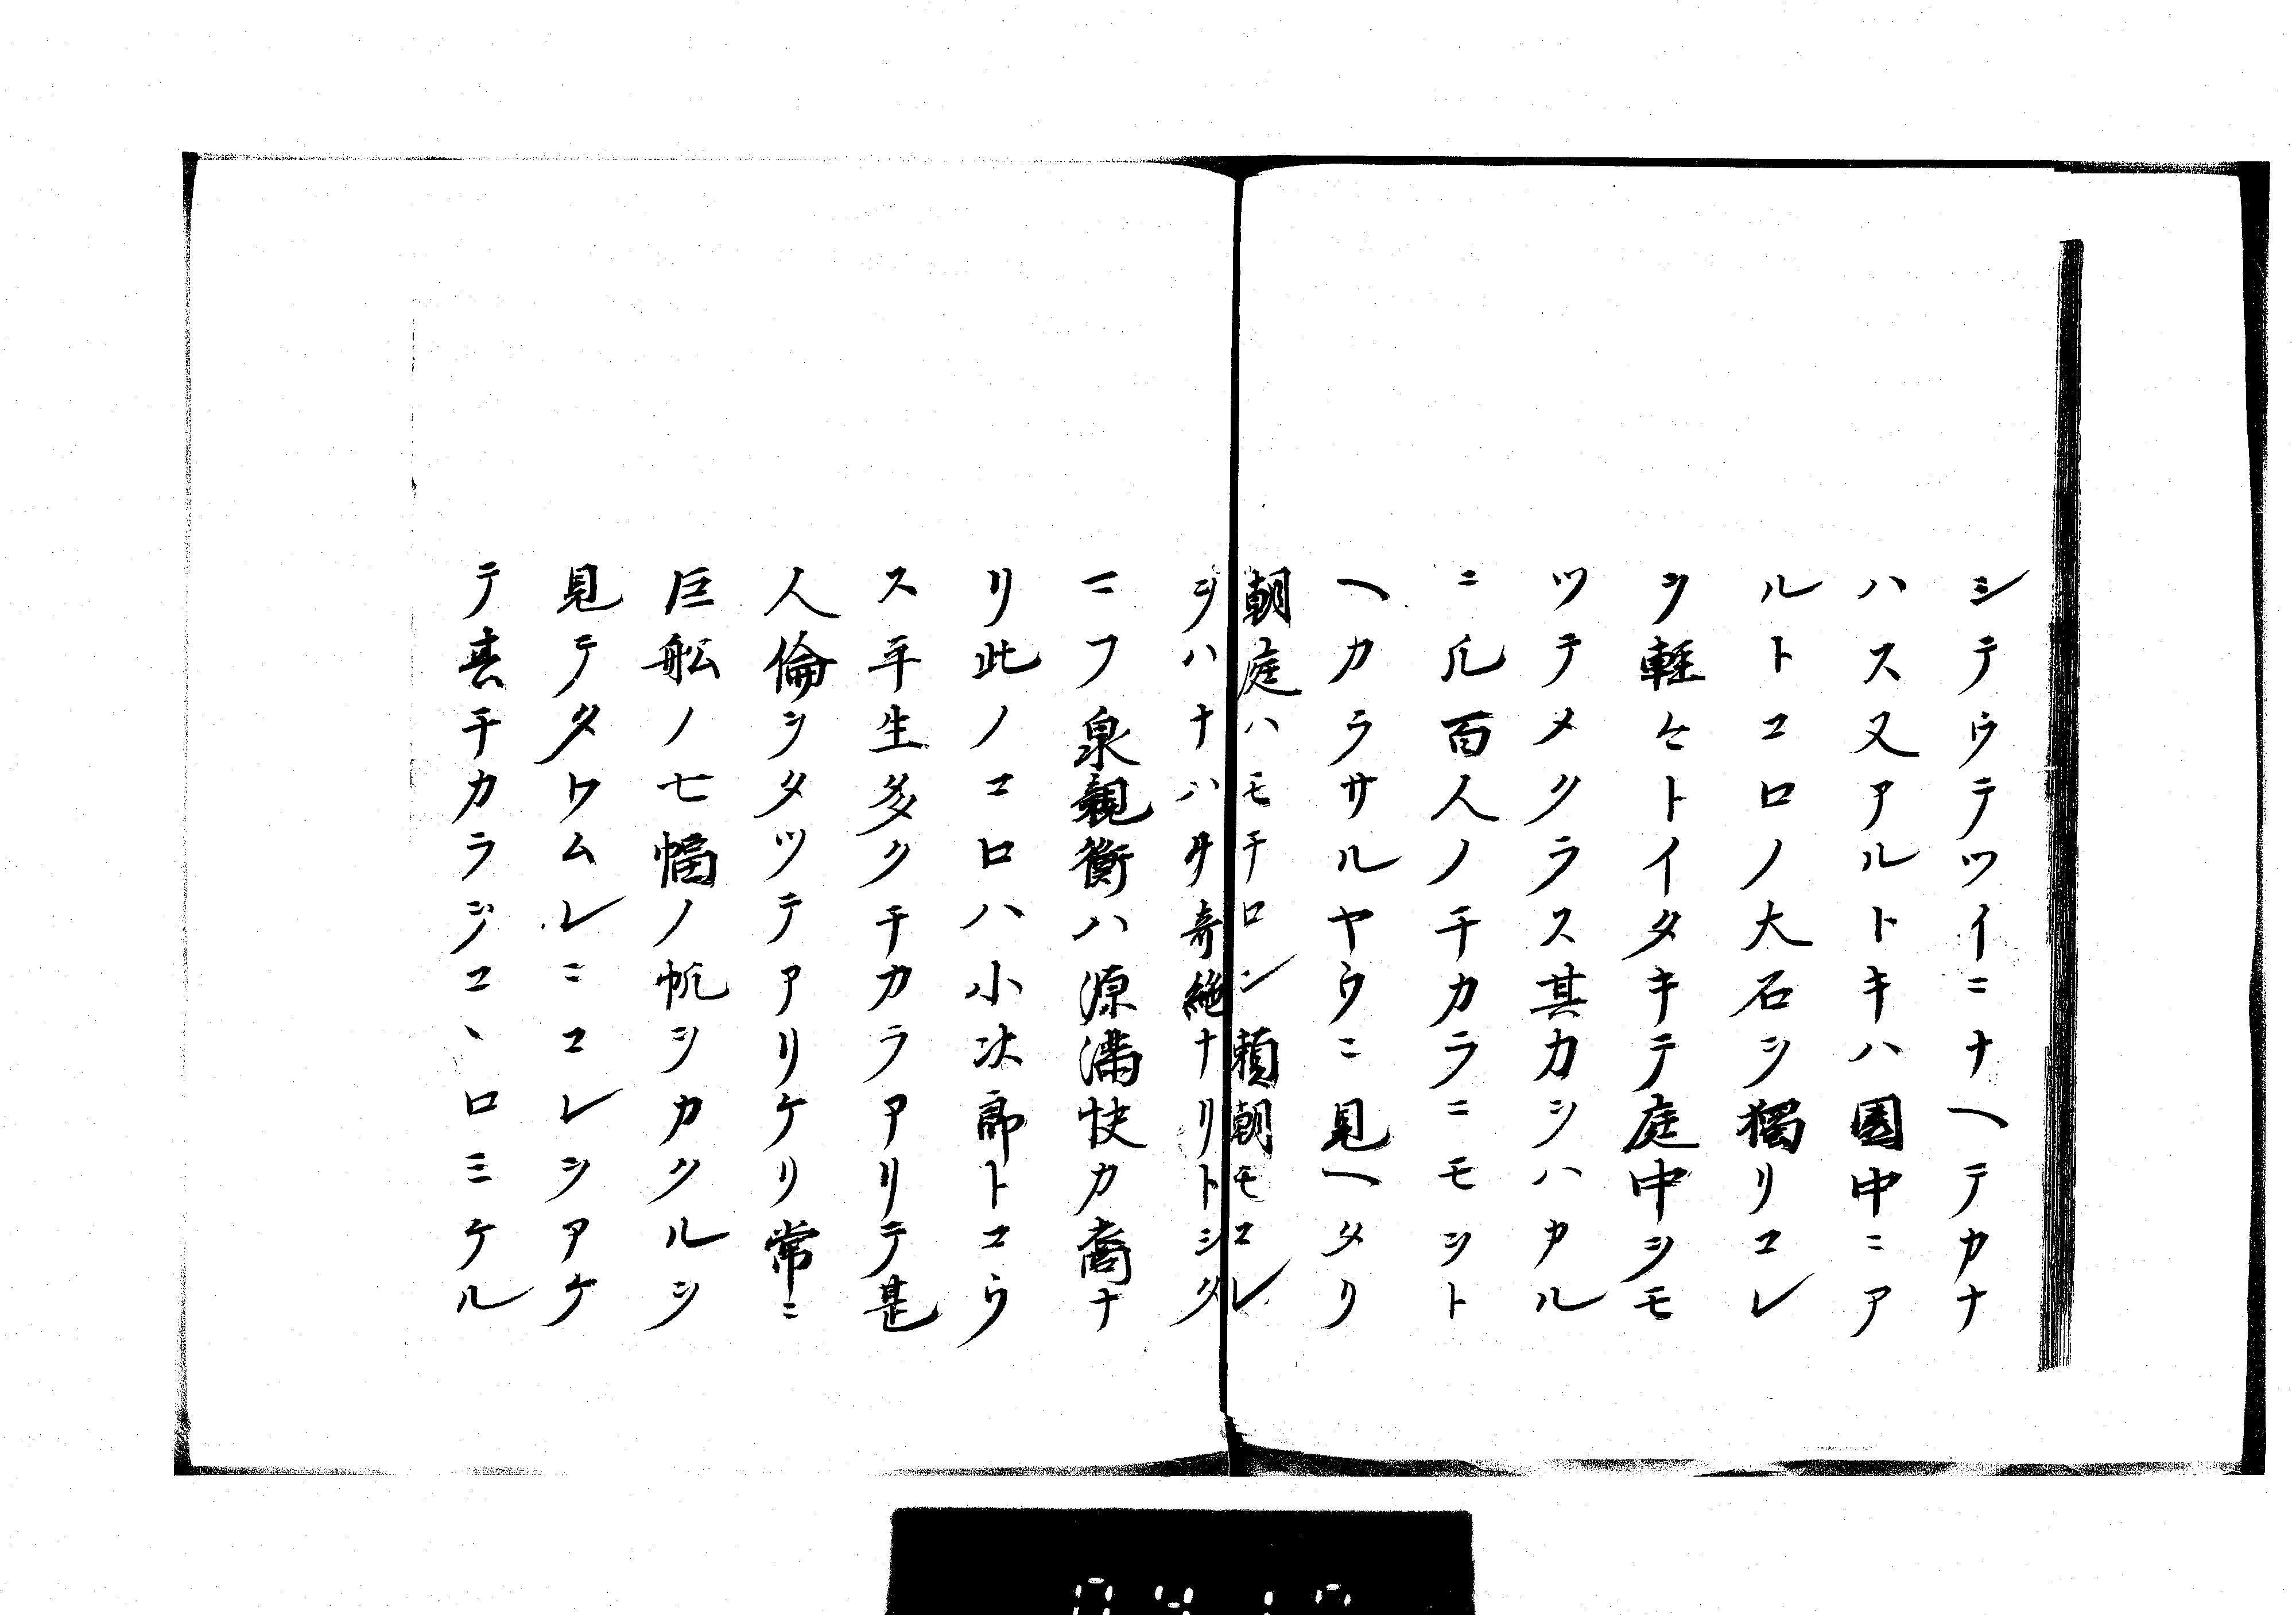 シテウテツイニナヘテカナ
ハス又アルトキハ園中ニア
ルトコロノ大石ヲ獨リコレ
ヲ軽々トイタキテ庭中ヲモ
ツテメクラス其力ヲハカル
ニ凡百人ノチカラニモヲト
ヘカラサルヤウニ見ヘタリ
朝庭ハモチロン頼朝モコレ
ヲハナハタ奇絶ナリトシタ
マフ泉親衡ハ源満快カ裔ナ
リ此ノコロハ小次郎トコウ
ス平生多クチカラアリテ甚
人倫ヲタツテアリケリ常ニ
巨舩ノ七幅ノ帆ヲカクルヲ
見テタワムレニコレヲアケ
テ其チカラヲコヽロミケル